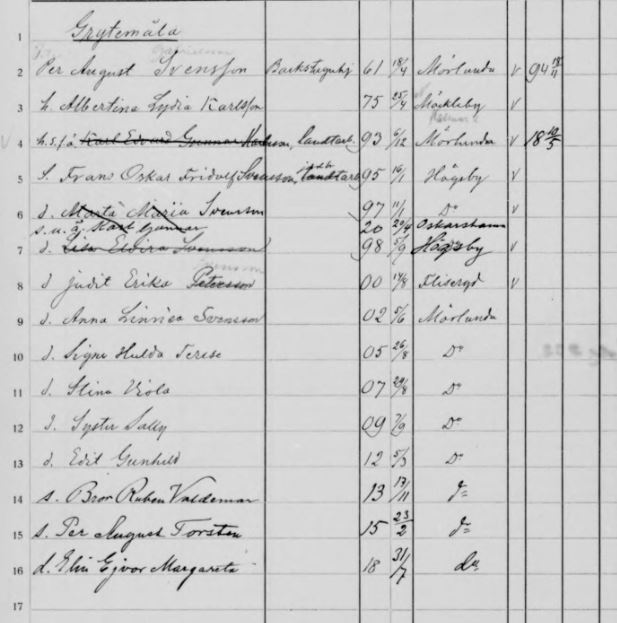 1 Grytemåla
2 Per August Svensson Backstuguhj 61 18/4 Mörlunda v 94 18/11
3 h. Albertina Lydia Karlsson 75 25/4 Möckleby v
4 h.s.f.ä Karl Edvard Gunnar landtarb. 93 6/12 Mörlunda v 18 10/5
5 s. Frans Oskar Fridolf Svensson, landtarb 95 16/1 Högsby v
6 d. Marta Maria Svensson 97 11/1 Do v
s.u.ä. Karl Gunnar 20 20/4 Oskarshamn
7 d. Lisa Elvira Svensson 98 5/9 Högsby v
8 d. Judit Erika Petersson 00 17/8 Fliseryd v
9 d. Anna Linnea Svensson 02 5/6 Mörlunda
10 d. Signe Hulda Terese 05 26/8 Do
11 d. Stina Viola 07 29/8 Do
12 d. Syster Sally 09 7/9 Do
13 d. Edit Gunhild 12 5/3 Do
14 s. Bror Ruben Valdemar 13 17/11 do
15 s. Per August Torsten 15 23/2 do
16 d. Elin Ejvor Margareta 18 31/7 do
17